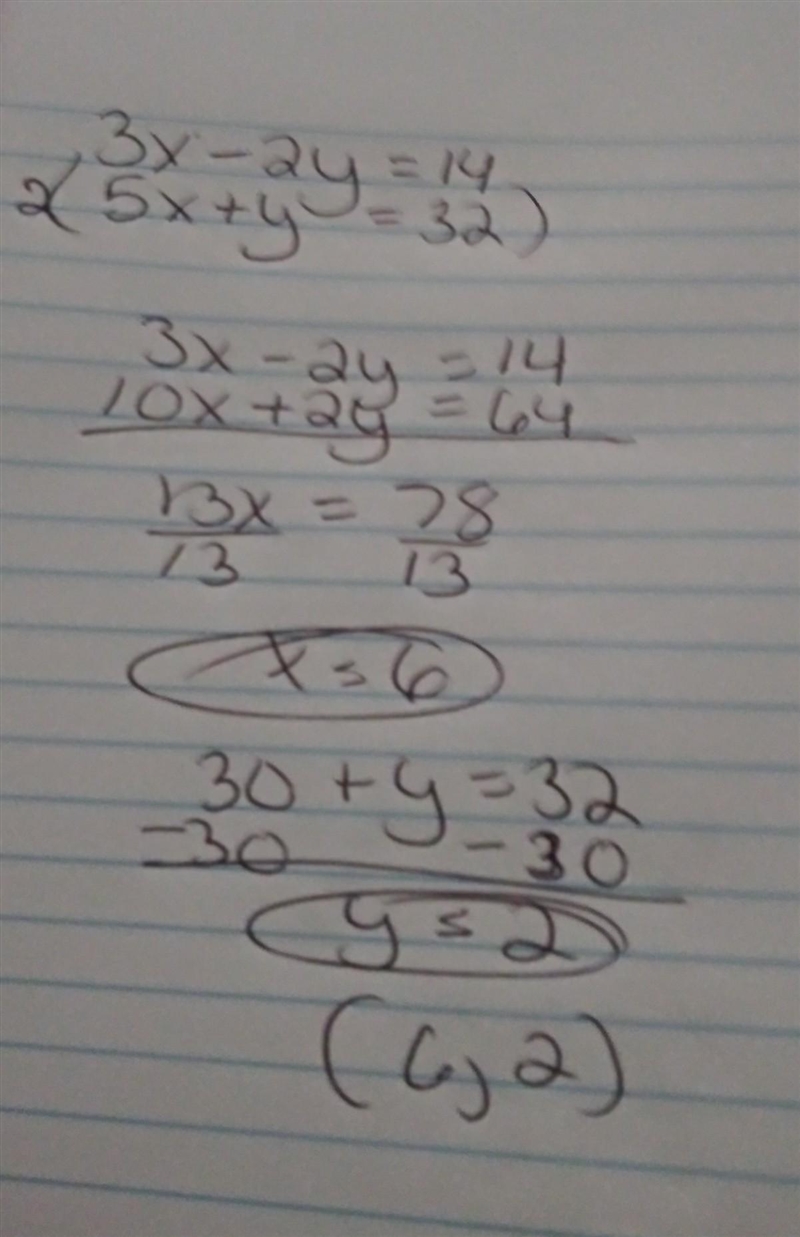 3x - 2y = 14
2(5x + y = 32)
3x - 2y = 14
10x + 2y = 64
13x = 78
13 13
x = 6
30 + y = 32
-30 -30
y = 2
(6, 2)